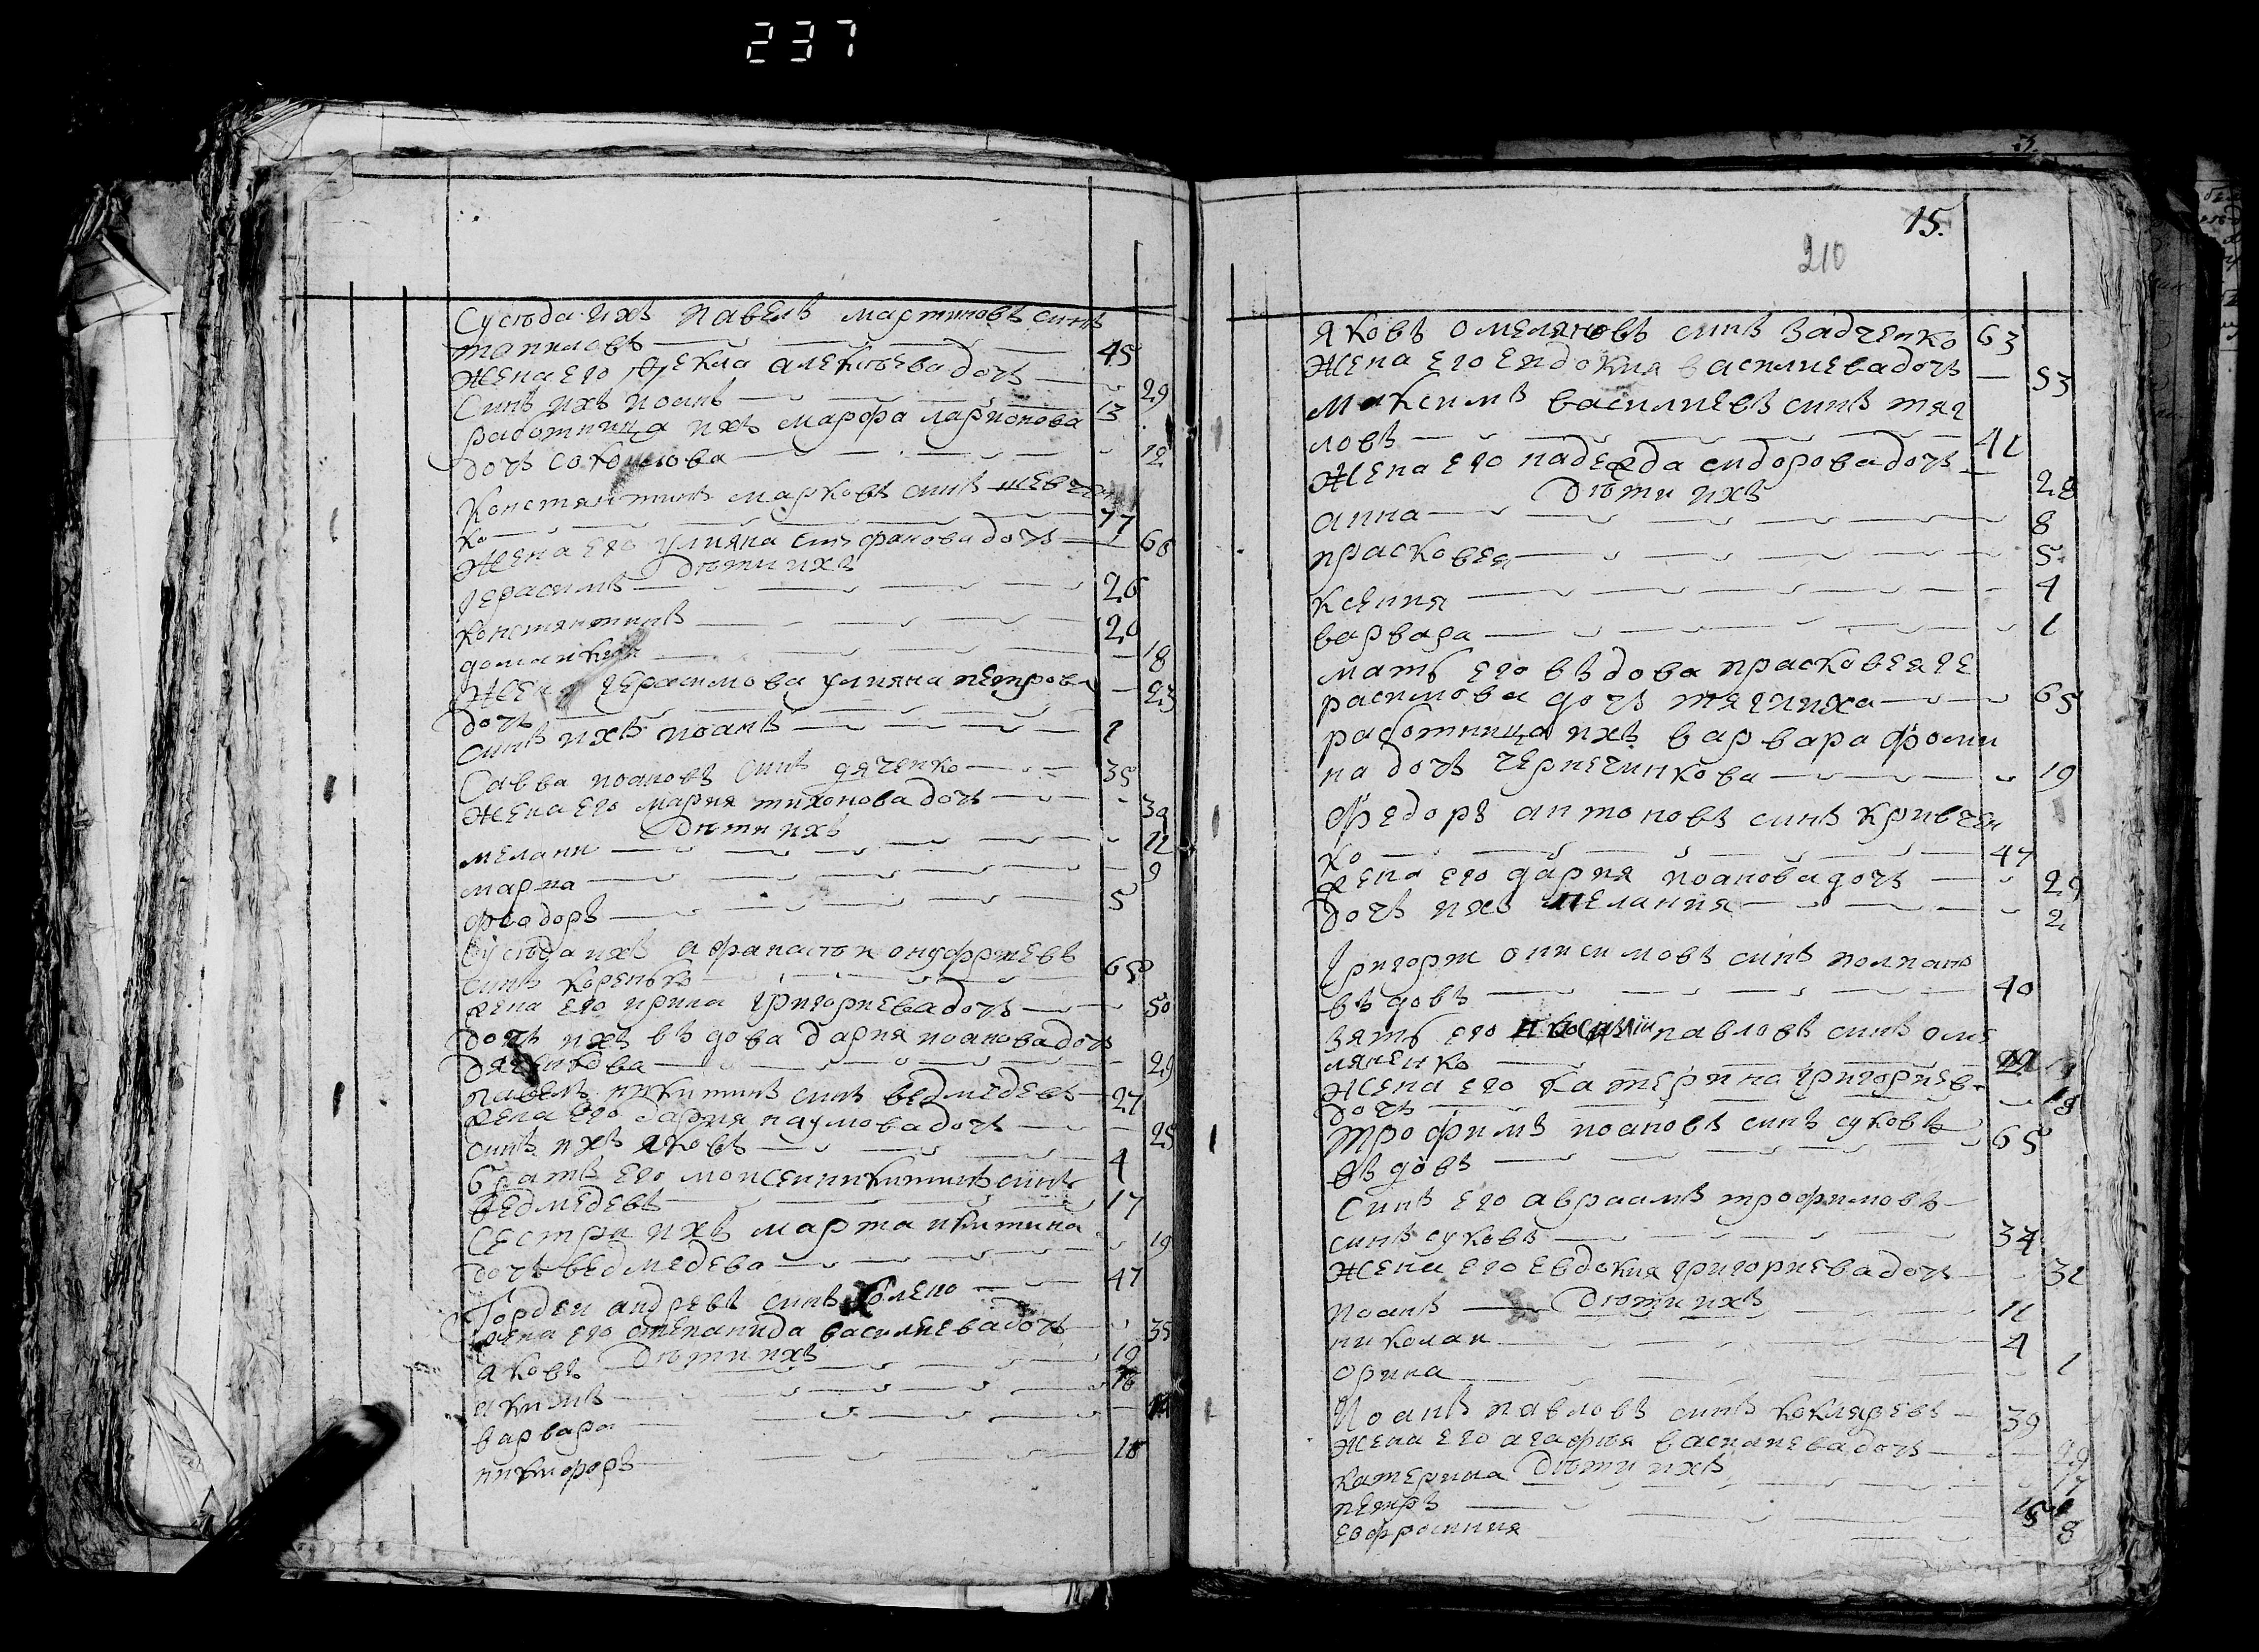 237
Сусѣда ихъ павелъ мартиновъ синъ
топиловъ 45
Жена его Ѳекла алексѣева дочь 29
Синъ ихъ иоанъ 13
работница ихъ марфа ларионова
дочь соколова 12
Константинъ марковъ синъ шевчен
ко 77
Жена его улияна стефанова дочь 60
Дѣти ихъ
герасимъ 26
константинъ 20
домникия 18
Жена герасимова улияна петрова 23
дочь
синъ ихъ иоанъ 1
Савва иоановъ синъ дяченко 35
Жена его мария тихонова дочь 30
Дѣти ихъ
мелани 11
марѳа 9
феодоръ 5
Сусѣда ихъ афанасѣи онуфриевъ
синъ коренько 65
Жена его ирина григориева дочь 50
Дочь ихъ вѣдова дария иоанова дочь
дяченкова 29
павелъ никитинъ синъ ведмедевъ 27
Жена его дария наумова дочь 25
синъ ихъ яковъ 4
братъ его моисеи никитинъ синъ
ведмедевъ 17
Сестра ихъ марта никитина 19
дочь ведмедева
Гордеи андреевъ синъ голено 47
Жена его степанида василиева дочь 35
Дѣти ихъ
яковъ 19
якимъ 16
варвара
никифоръ 18
15.
210
яковъ омеляновъ синъ Задченко 63
Жена его евдокия василиева дочь 53
Максимъ василиевъ синъ тяг
ловъ 41
Жена его надежда сидорова дочь 28
Дѣти ихъ
анна 8
прасковея 5
ксения 4
варвара 1
мать его вѣдова прасковея ге
расимова дочь тяглиха 65
работница ихъ варвара фоми
на дочь чернечинкова 19
Ѳедоръ антоновъ синъ кривчен
ко 47
Жена его дария иоанова дочь 29
дочь ихъ мелания 2
Григории онисимовъ синъ полпано
вѣдовъ 40
зять его василии павловъ синъ оме
ляненко
Жена его катерина григориев
дочь 18
Трофимъ иоановъ синъ суковъ 65
вѣдовъ
Синъ его авраамъ трофимовъ
синъ суковъ 34
Жена его евдокия григориева дочь 31
Дѣти ихъ
иоанъ 11
николаи 4
орина 1
Иоанъ павловъ синъ кокляревъ 39
Жена его агафия василиева дочь 29
Дѣти ихъ
катерина 17
петръ 15
евфросиния 8